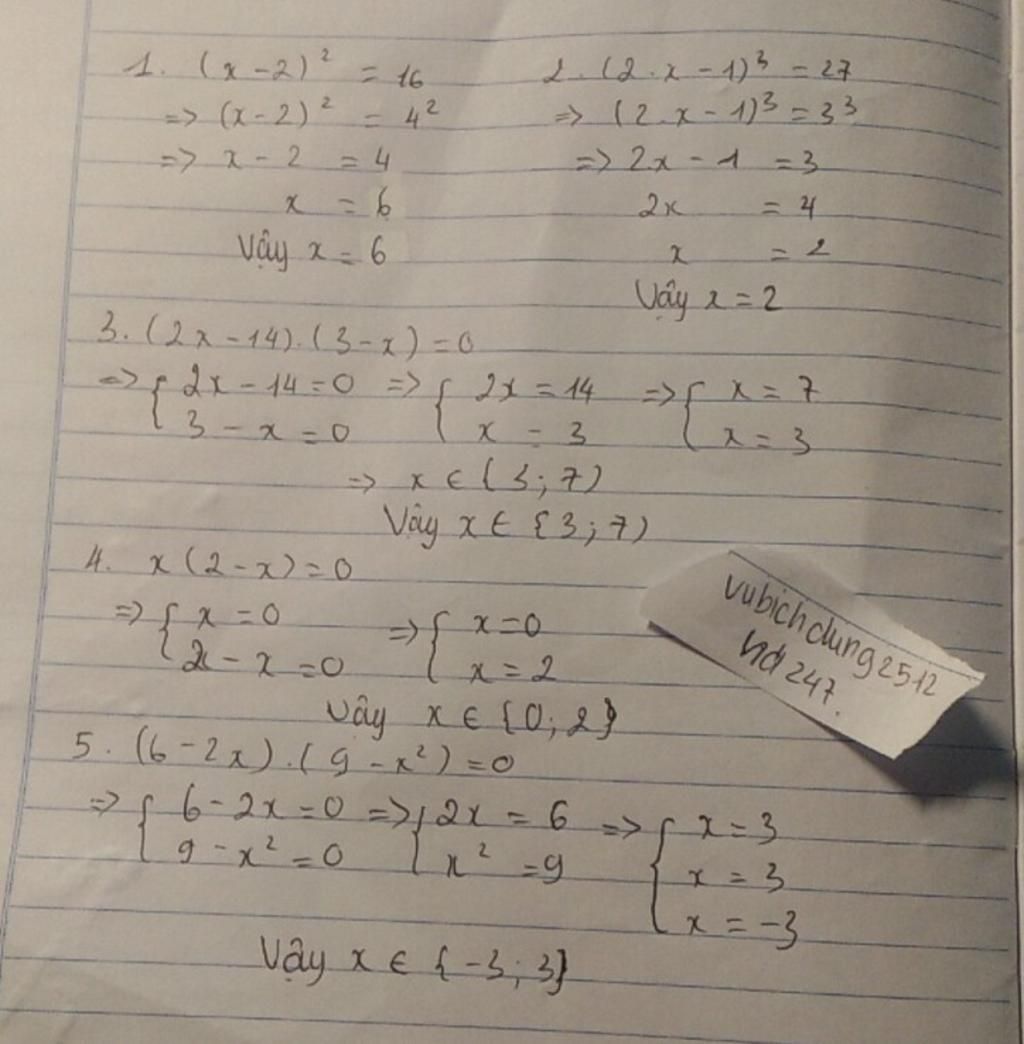 1. (x - 2)² = 16
=> (x - 2)² = 4²
=> x - 2 = 4
x = 6
Vậy x = 6
2. (2.x - 1)³ = 27
=> (2.x - 1)³ = 3³
=> 2x - 1 = 3
2x = 4
x = 2
Vậy x = 2
3. (2x - 14).(3 - x) = 0
=> { 2x - 14 = 0 => { 2x = 14 => { x = 7
3 - x = 0 x = 3 x = 3
=> x ∈ {3; 7)
Vậy x ∈ {3; 7)
4. x(2 - x) = 0
=> { x = 0 => { x = 0
2 - x = 0 x = 2
Vậy x ∈ {0; 2}
vubichdung2512
hd247.
5. (6 - 2x).(9 - x²) = 0
=> { 6 - 2x = 0 => { 2x = 6 => { x = 3
9 - x² = 0 x² = 9 x = 3
x = -3
Vậy x ∈ {-3; 3}